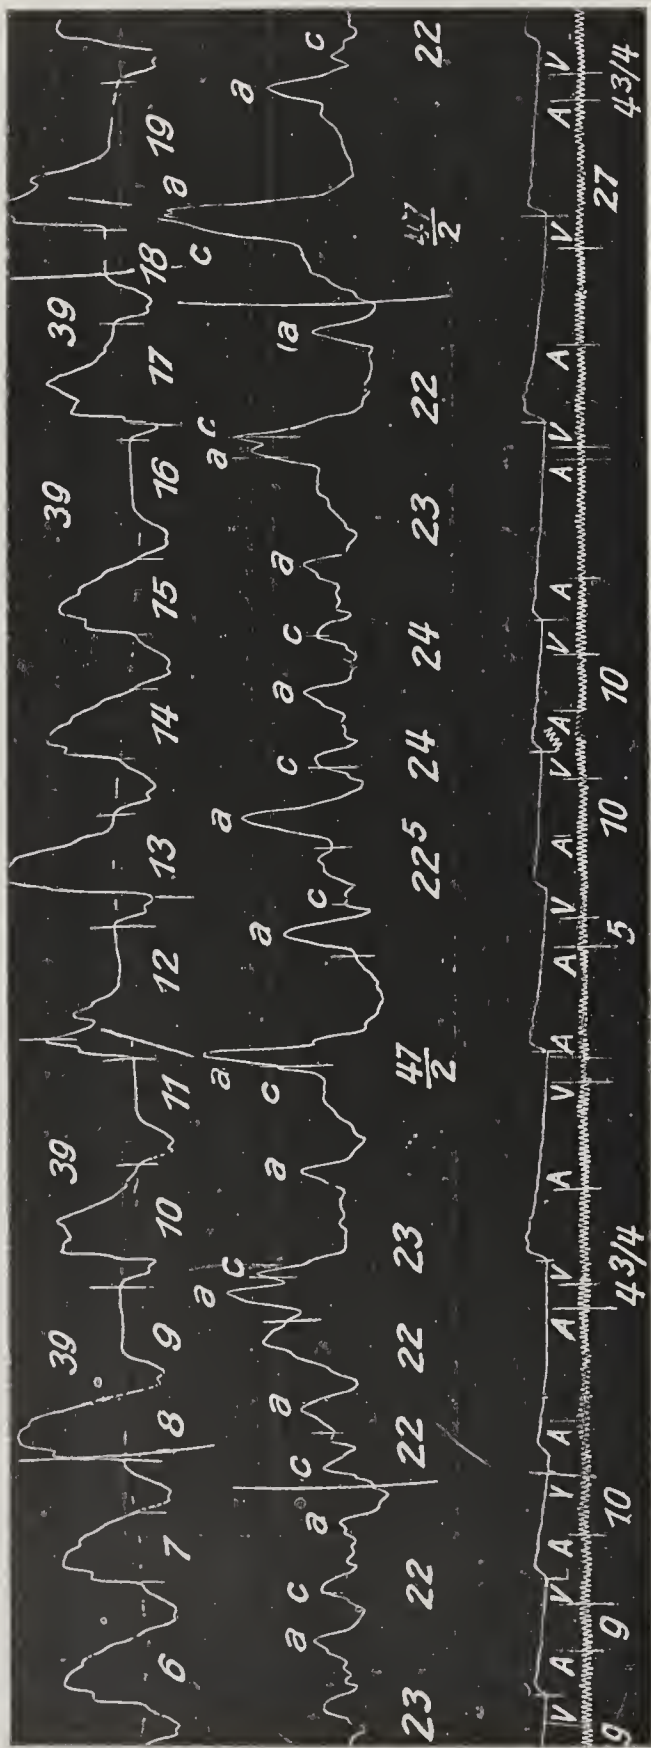 39 39 39 39
6 7 8 9 10 11 12 13 14 15 16 17 18 19
a c a c a a c a c a a c a c a c a a c a c a a c
23 22 22 22 23 47/2 22 5 24 24 23 22 47/2 22
V A V A V A A V A V A A V A V A V A A V A V A V
9 9 10 4 3/4 5 10 10 27 4 3/4